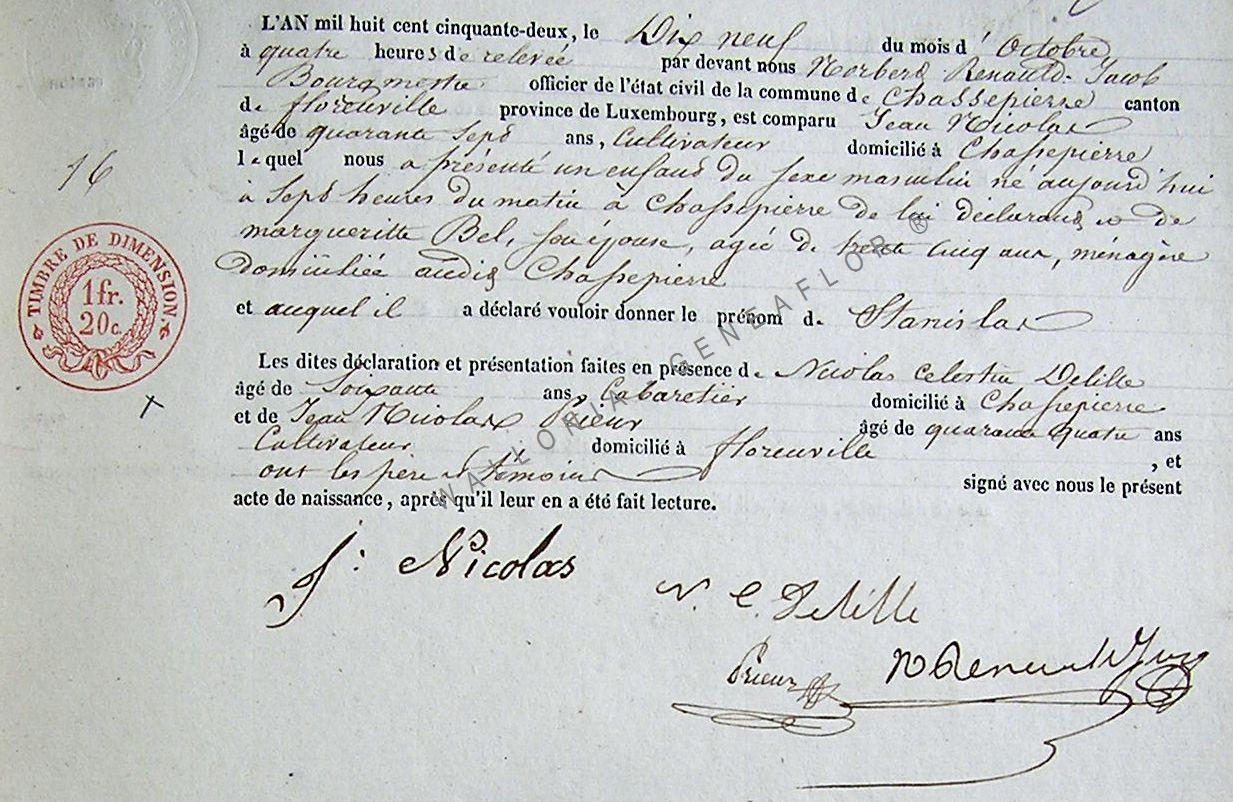 L'AN mil huit cent cinquante-deux, le Dix neuf du mois d' Octobre
à quatre heures de relevée par devant nous Norbert Renauld-Jacob
Bourgmestre officier de l'état civil de la commune de Chassepierre canton
de florenville province de Luxembourg, est comparu Jean Nicolas
âgé de quarante sept ans, Cultivateur domicilié à Chassepierre
lequel nous a présenté un enfant du sexe masculin né aujourd'hui
à sept heures du matin à Chassepierre de lui déclarant et de
margueritte Bel, son épouse, agée de trente cinq ans, ménagère
domiciliée audit Chassepierre
et auquel il a déclaré vouloir donner le prénom de Stanislas
Les dites déclaration et présentation faites en présence de Nicolas Celestin Delille
âgé de Soixante ans, Cabaretier domicilié à Chassepierre
et de Jean Nicolas Prieur âgé de quarante quatre ans
Cultivateur domicilié à florenville , et
ont les père et témoins signé avec nous le présent
acte de naissance, après qu'il leur en a été fait lecture.
J: Nicolas
N. C. Delille
Prieur
N Renauld Jacob
16
TIMBRE DE DIMENSION.
1 fr.
20 c.
WALLONIA GENEAFLOR ®